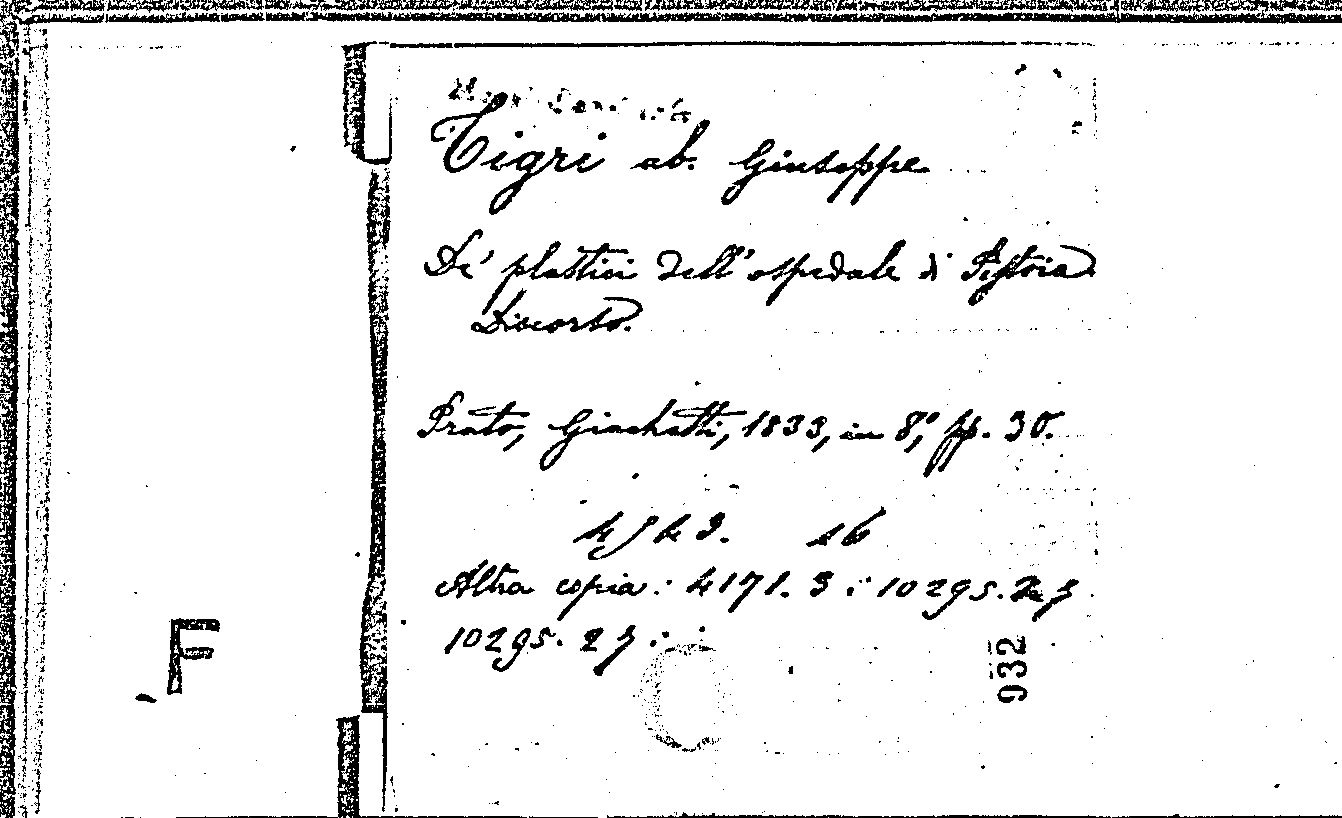 Tigri ab. Giuseppe
De' plastici dell'ospedale di Pistoia.
Discorso.
Prato, Giachetti, 1833, in 8°, pp. 30.
Altra copia: 4171. 3
10295. 27
932
F